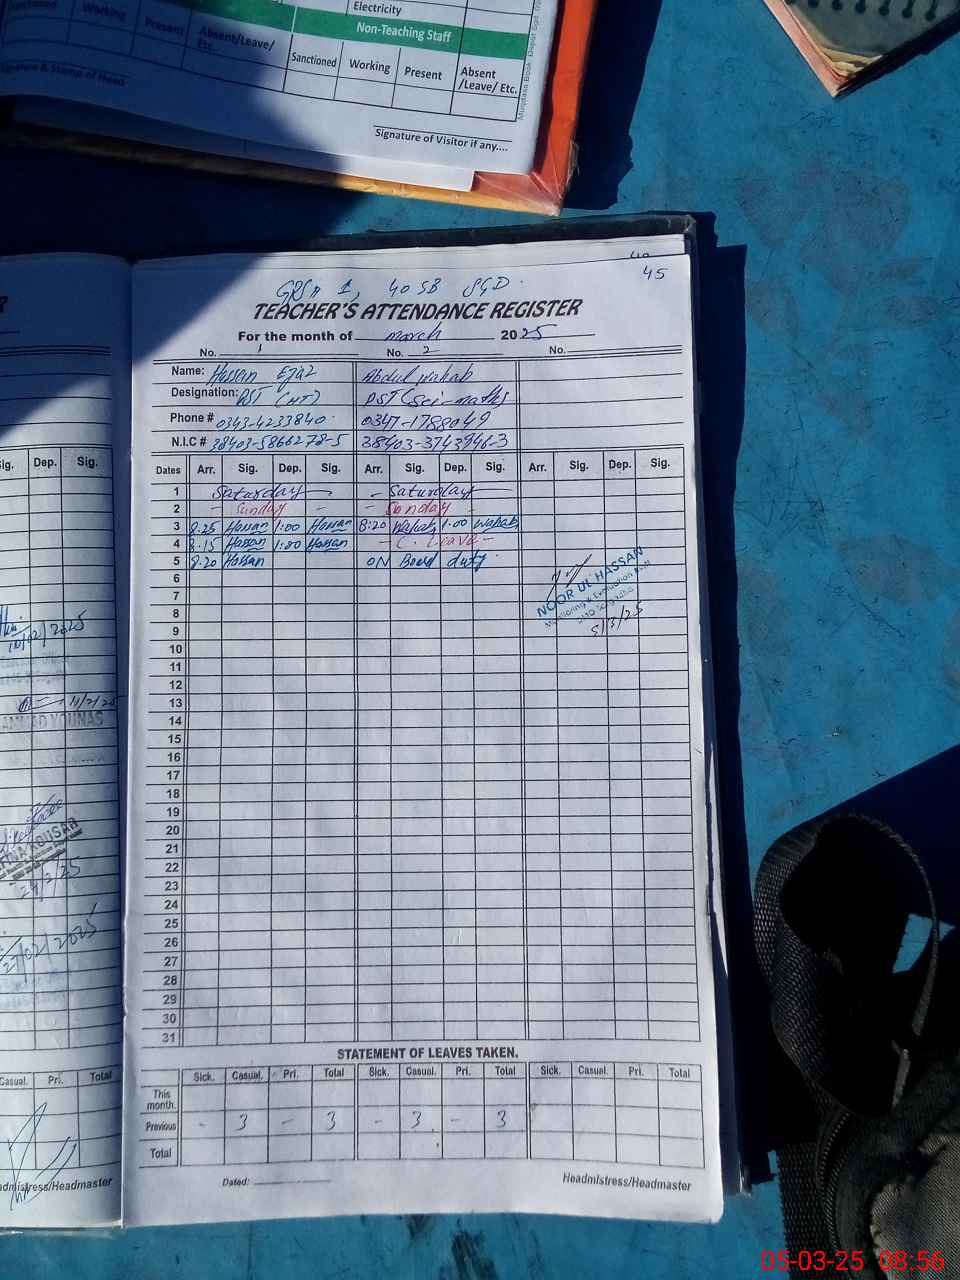 Electricity
Non-Teaching Staff
Working Present Absent/Leave/ Etc.
Sanctioned Working Present Absent /Leave/ Etc.
Signature & Stamp of Head
Signature of Visitor if any....
45
40 SB SGD
TEACHER'S ATTENDANCE REGISTER
For the month of march 2025
No. 1 No. 2 No.
Name: Hassan Ejaz Abdul wahab
Designation: PST (HT) PST (Sci-maths
Phone # 0343-4233840 0347-1788049
N.I.C # 38403-5866278-5 38403-3743946-3
Dates Arr. Sig. Dep. Sig. Arr. Sig. Dep. Sig. Arr. Sig. Dep. Sig.
1 Saturday - Saturday
2 - Sunday - - Sunday -
3 8:25 Hassan 1:00 Hassan 8:20 Wahab 1:00 Wahab
4 8:15 Hassan 1:00 Hassan - C. Leave -
5 8:20 Hassan ON Board duty
6
7
8
9
10
11
12
13
14
15
16
17
18
19
20
21
22
23
24
25
26
27
28
29
30
31
NOOR UL HASSAN
Monitoring & Evaluation
5/3/25
STATEMENT OF LEAVES TAKEN.
Sick. Casual. Pri. Total Sick. Casual. Pri. Total Sick. Casual. Pri. Total
This month.
Previous - 3 - 3 - 3 - 3
Total
Dated:
Headmistress/Headmaster
Sig. Dep. Sig.
/02/2025
11/2/25
MMAD YOUNAS
KOUSAR
24/2/25
27/02/2025
Casual. Pri. Total
admistress/Headmaster
05-03-25 08:56